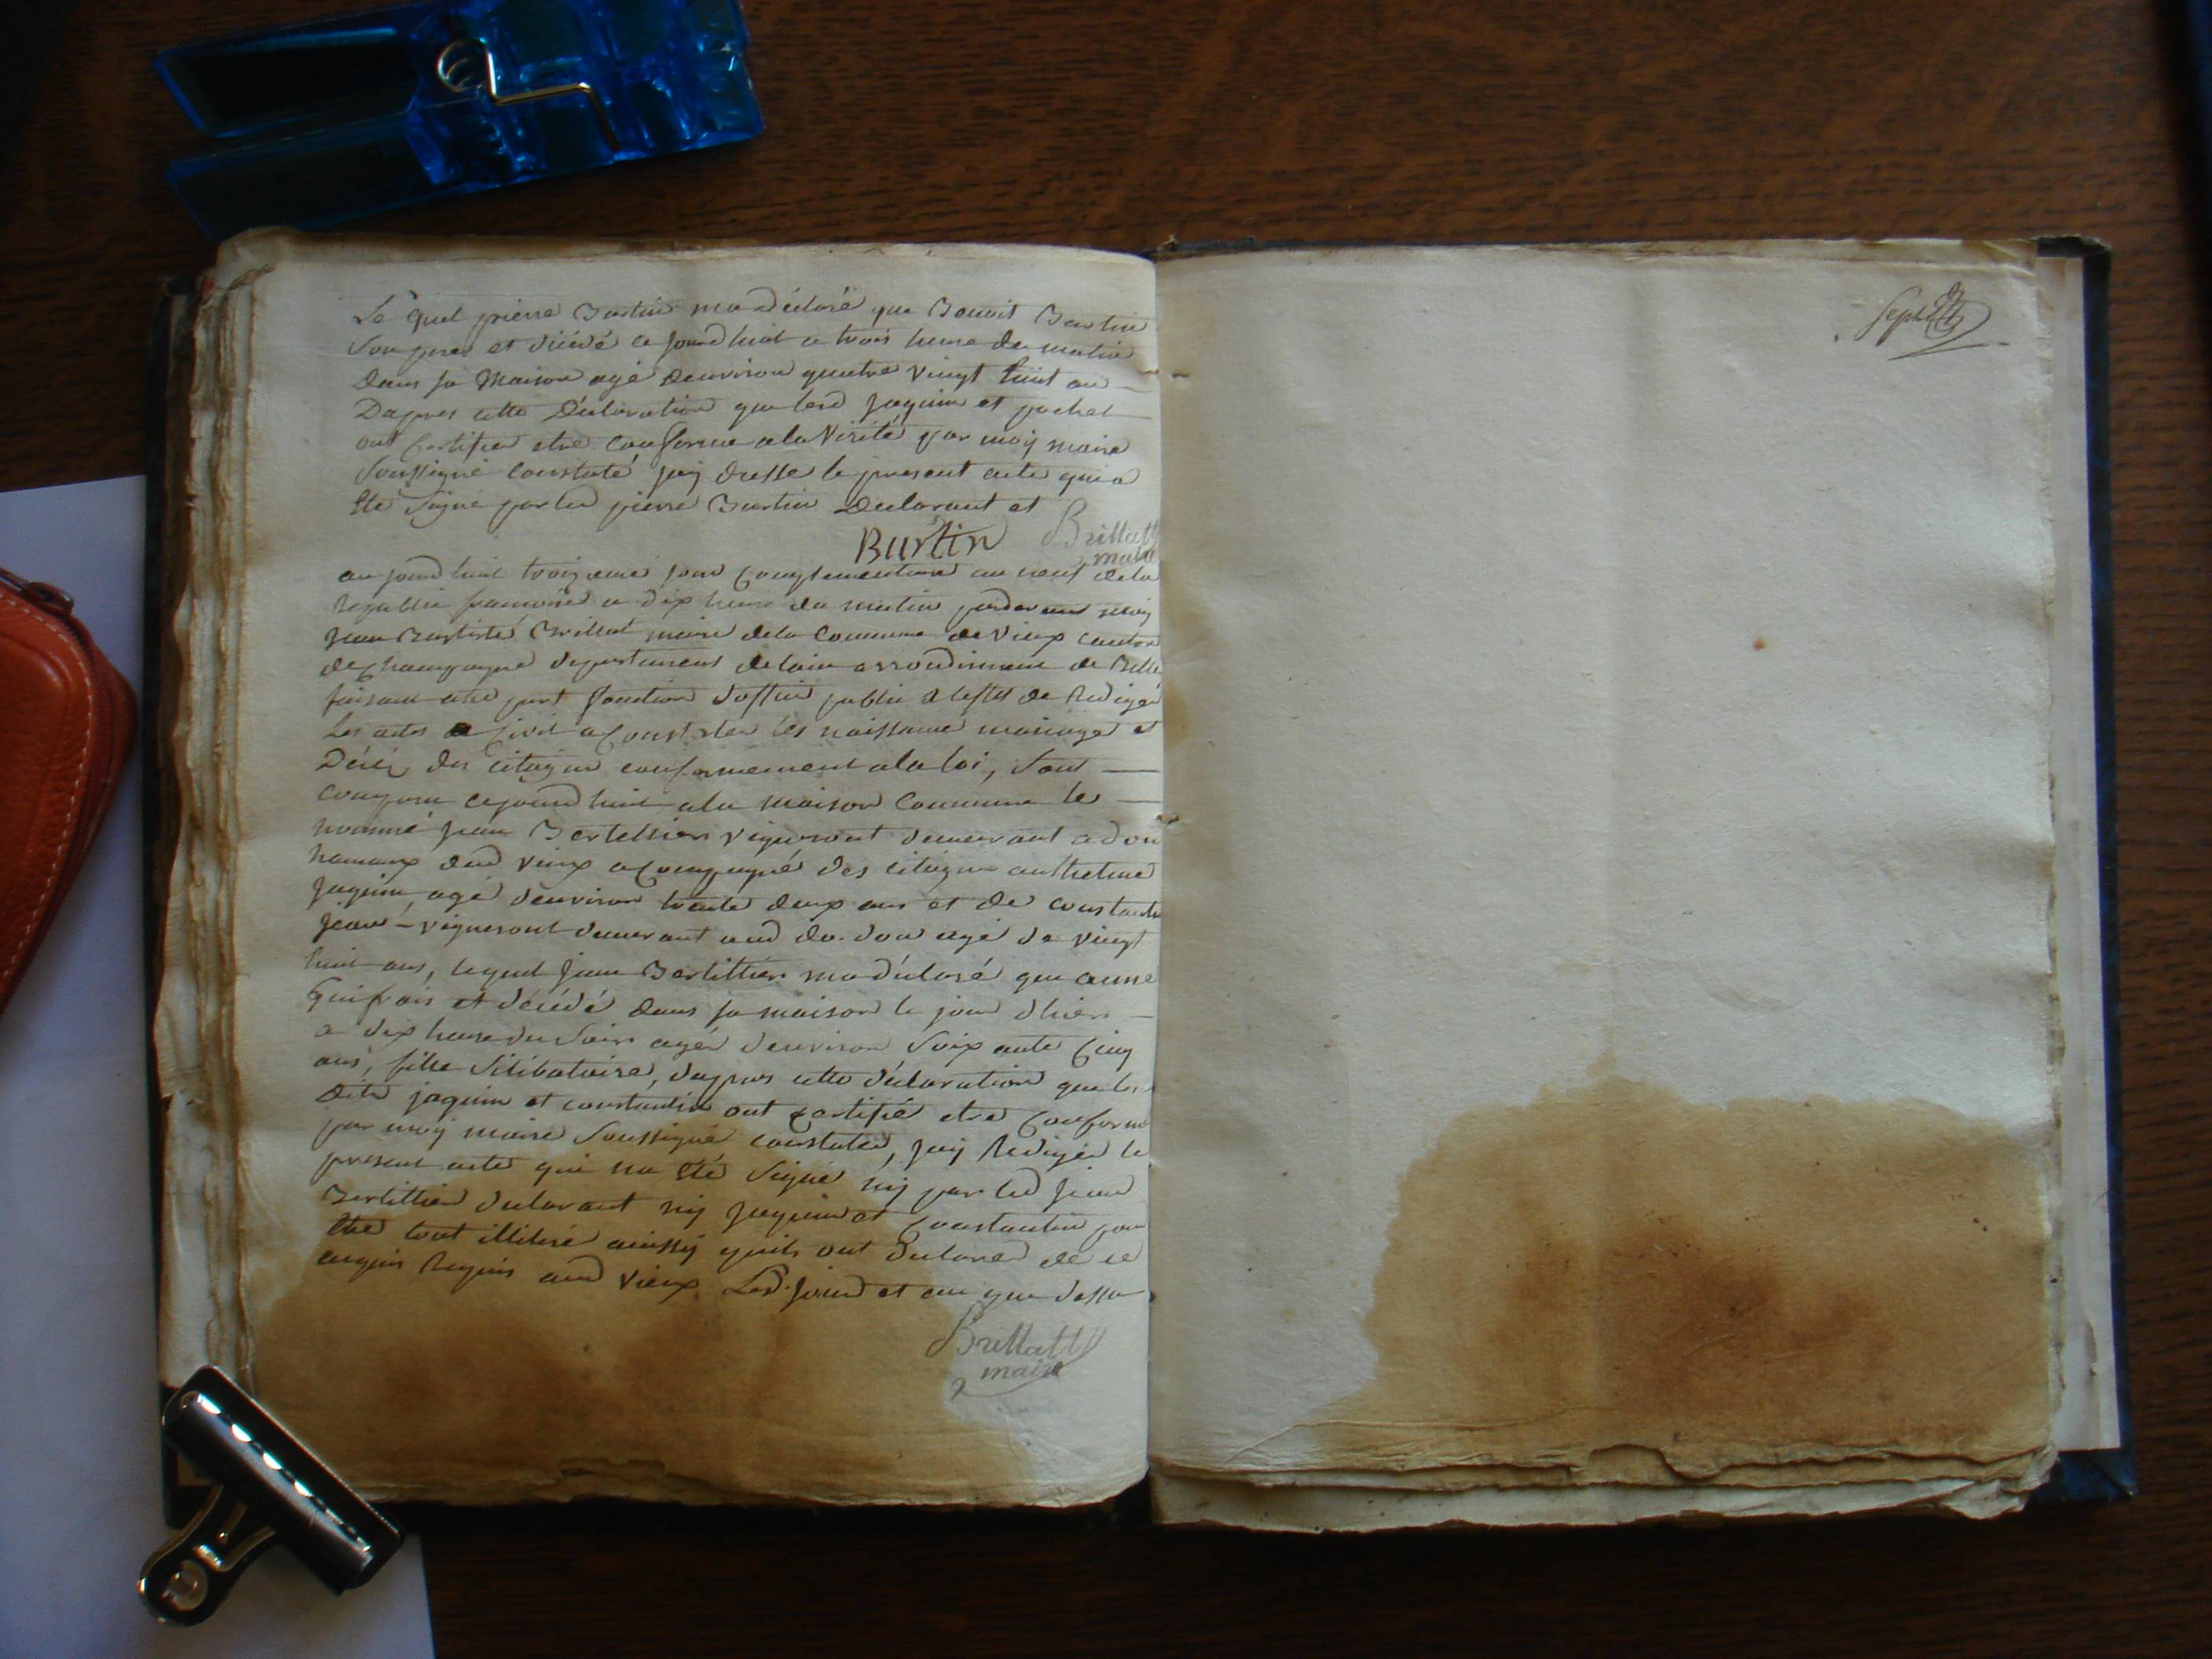 Le quel pierre Burtin ma déclaré que Benoit Burtin
Son pere et décédé ce jourd huit a trois heure du matin
dans sa Maison agé denviron quatre vingt huit an
Dapres cette déclaration que lesd Jaquin et pochet
ont certifier etre conforme ala Vérité par moy maire
Soussigné constaté jay dressé le present acte qui a
Eté Signé par led pierre Burtin Declarant et
Burtin Brillatt
maire
au jourd huit troizieme jour complementaire an neuf de la
Republic francoise a dix heure du matin pardevant moy
jean Baptiste Brillat maire dela Commune de Vieux canton
de champagne departement delain arrondissement de Belle
faisant fonction doffice public a leffet de Rediger
Les actes civil a Constater les naissance mariage et
Décés des citoyen conformement ala loi, Sont
comparu cejourd huit ala maison Commune le
nommé jean Bertellier vigneront demeurant a don
hamaux dud vieux acompagné des citoyen anthelme
jaquin, agé denviron trante deux ans et de constantin
jean vigneront demeurant aud don agé de vingt
huit ans, lequel jean Bertillier ma déclaré que anne
et décédé dans sa maison le jour dhier
a dix heure du Soir agée denviron Soixante Cinq
ans, fille Silibataire, dapres cette déclaration que les
dits jaquin et constantin ont certifié etre Conforme
par moy maire Soussigné constatée, jay Rediger le
present acte qui na Eté Signé ny par led jean
Bertillier declarant ny jaquin et Constantin pour
Etre tout illitiré ainssy quils ont Declaré de ce
enquis Requis aud Vieux Led. jour et an que dessu
Brillatt
maire
Sept